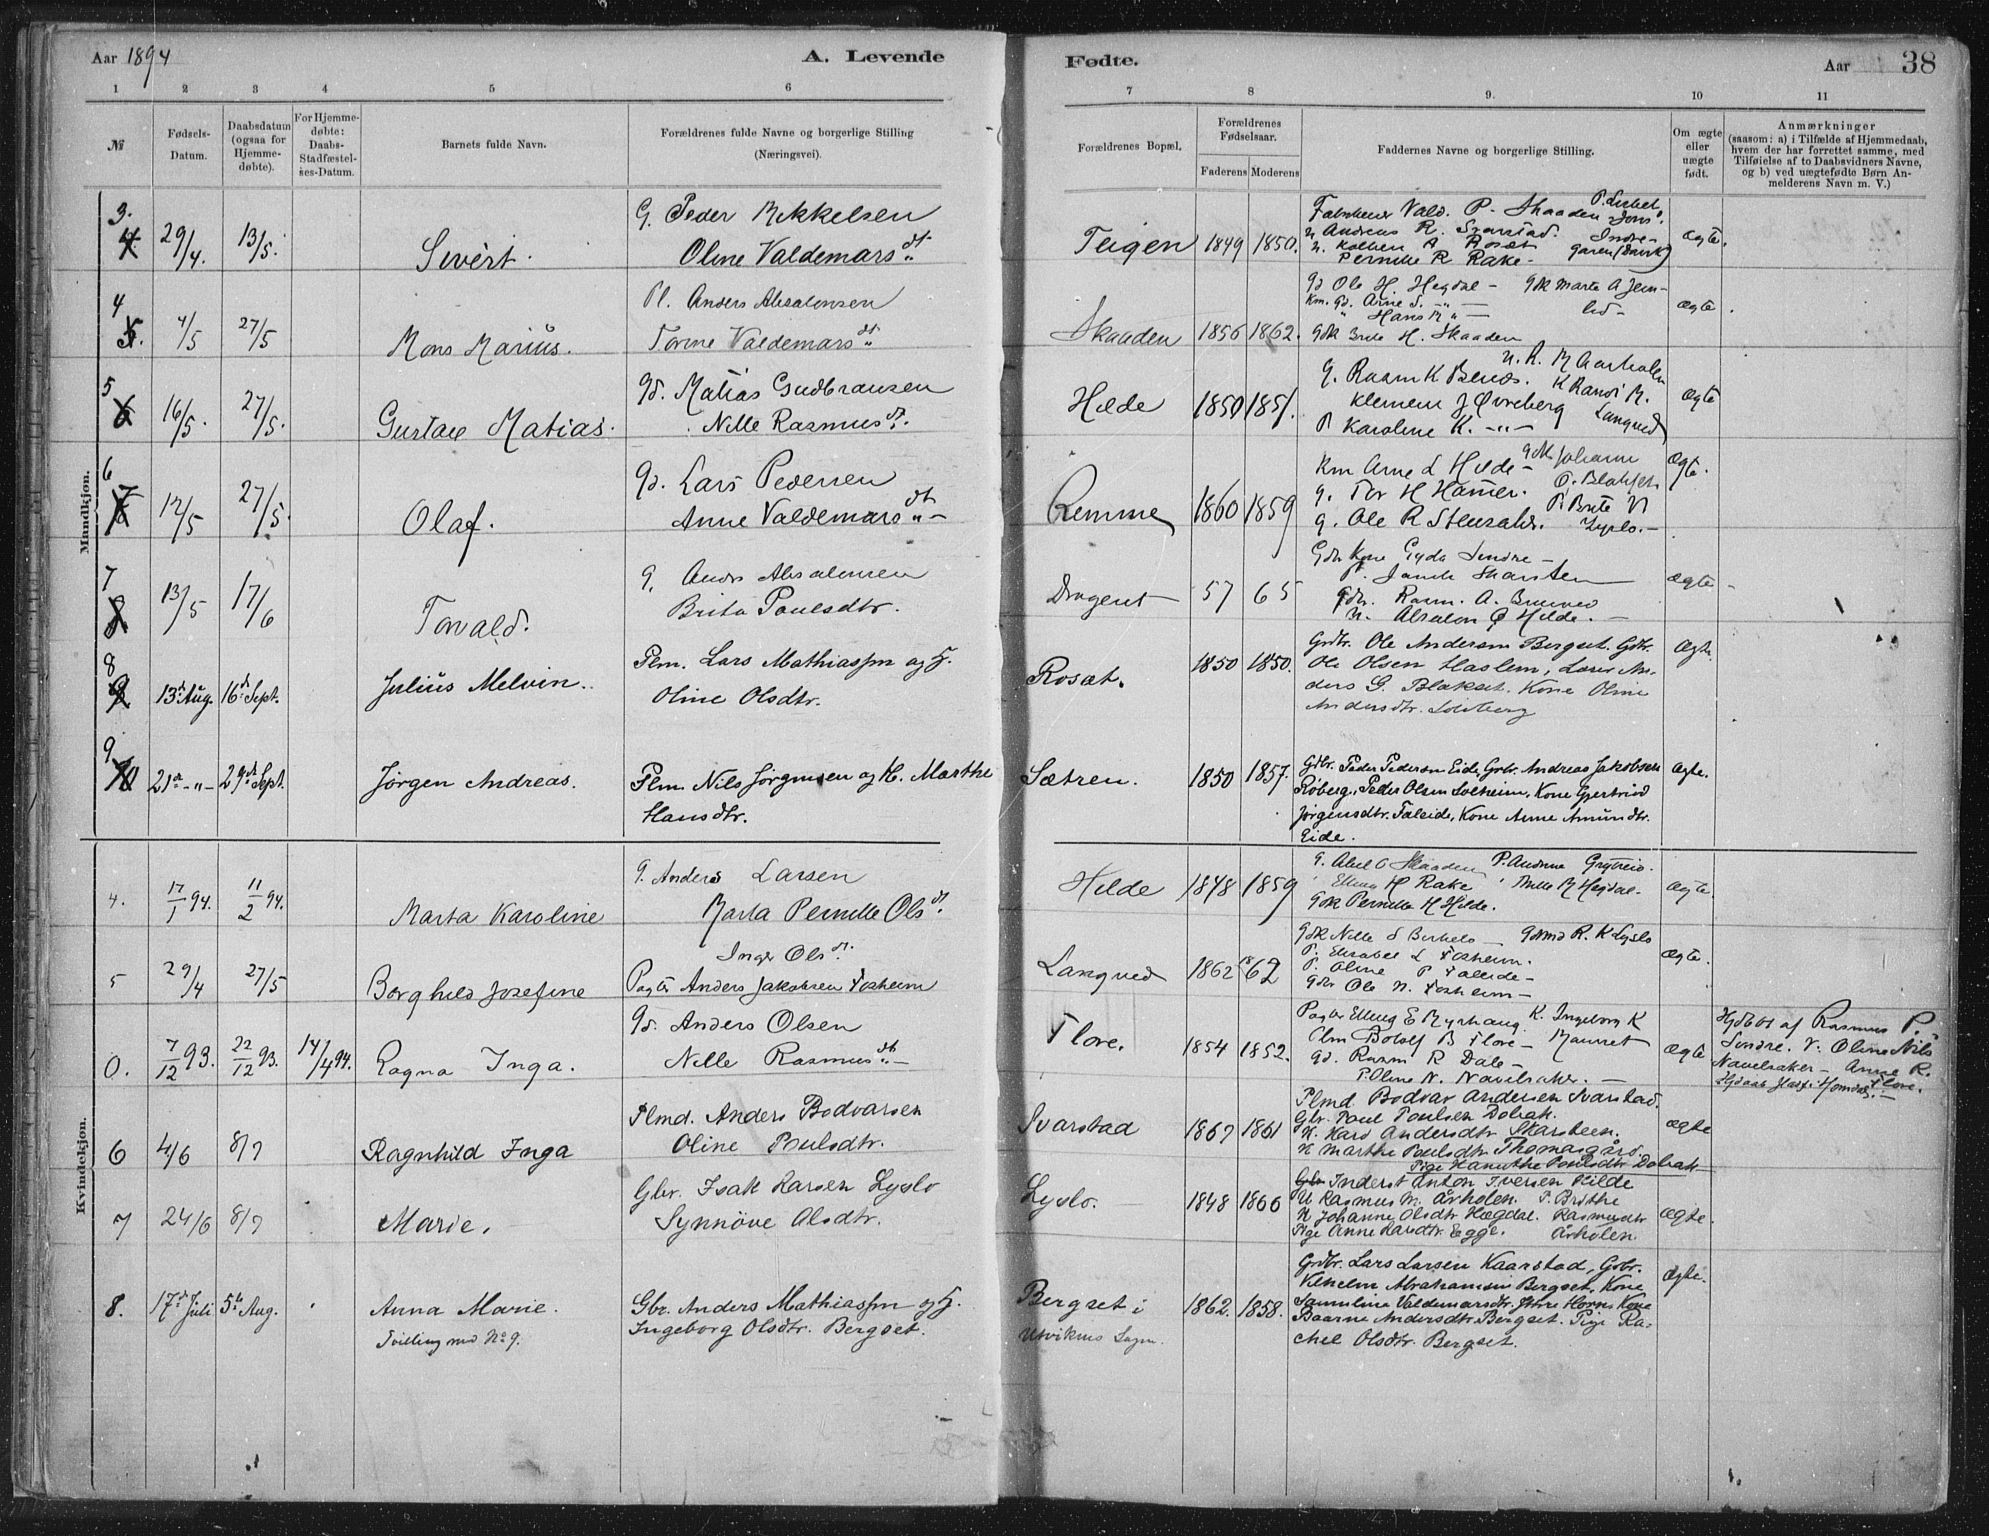 Aar 1894
A. Levende
Fødte.
Aar
38
1 2 3 4 5 6 7 8 9. 10 11
№
Fødsels-
Datum.
Daabsdatum
(ogsaa for
Hjemme-
døbte).
For Hjemme-
døbte:
Daabs-
Stadfæstel-
ses-Datum.
Barnets fulde Navn.
Forældrenes fulde Navne og borgerlige Stilling
(Næringsvei).
Forældrenes Bopæl.
Forældrenes
Fødselsaar.
Faderens Moderens
Faddernes Navne og borgerlige Stilling.
Om ægte
eller
uægte
født.
Anmærkninger
(saasom: a) i Tilfælde af Hjemmedaab,
hvem der har forrettet samme, med
Tilføielse af to Daabsvidners Navne,
og b) ved uægtefødte Børn An-
melderens Navn m. V.)
Mandkjøn.
3. 29/4. 13/5. Sivert.
G. Peder Mikkelsen
Oline Valdemarsdt.
Teigen 1849 1850.
Vald. P. Skaaden
Andreas R. Svarstad.
A Rosæt
Pernille R Rake-
Ægte.
4 4/5 27/5 Mons Marius.
Pl. Anders Absalonsen
Torine Valdemarsdt.
Skaaden 1856 1862.
Gd Ole H. Hegdal - Gdk Marta A
Km. Gd. Arne S. -"-
" Hans M "-
Gdk Brite H. Skaaden
Ægte.
5 16/5. 27/5. Gustav Matias.
Gd. Matias Gudbransen
Nille Rasmusdt.
Hilde 1850 1851.
G. Rasm K Bends. K Randi M.
Klemem J Øvreberg Langved
P Karoline K. -"-
Ægte
6 12/5 27/5. Olaf.
Gd. Lars Pedersen
Anne Valdemarsdt -
Remme 1860 1859
Km Arne L Hilde - Gdk Johanne
G. Tor H Hamer. O. Blakset
G. Ole R P. Brite N
Lyslo. -
Ægte.
7 13/5 17/6 Torvald.
G. Anders Absalonsen
Brita Poulsdtr.
Drageset 57 65
Gdr Kone Gyda Sindre -
P. Skarsten
Gdr. Rasm. A.
N. Absalon Hilde. -
Ægte -
8 13de Aug. 16de Sept. Julius Melvin.
Plm. Lars Mathiassen og H.
Oline Olsdtr.
Rosæt. 1850 1850.
Grdbr. Ole Andersen Bergset. Gdr.
Ole Olsen Haslem,
ders G. Blakset. Kone Oline
Andersdtr. Solberg
Ægte.
9 21de -"- 29de Sept. Jørgen Andreas.
Plm. Nils Jørgensen og H. Marthe
Hansdtr.
Sætren. 1850 1857.
Grbr. Peder Pedersen Eide, Grbr. Andreas Jakobsen
Roberg, Peder Olsen Solheim, Kone Gjertrud
Jørgensdtr. Faleide, Kone Anne Amundtr.
Eide.
Ægte.
Kvindekjøn.
4. 17/1 94. 11/2 94. Marta Karoline
G. Anders Larsen
Marta Pernille Olsdt.
Hilde 1848 1859
G. Abel O Skaaden P. Andrine Gryteid.
Elling H Rake Brille M Hegdal-
Gdk Pernille H Hilde.
Ægte.
5 29/4 27/5 Borghild Josefine
Inger Olsdt.
Pagtr Anders Jakobsen Fosheim
Langved 1862 1862
Gdk Nille S Berhelo - R. K Lyslo
P. Elisabet L Fosheim.
P. Oline P Faleide -
Gdr Ole N. Fosheim -
Ægte.
0. 7/12 93. 22/12 93. 14/4 94. Ragna Inga.
Gd. Anders Olsen
Nille Rasmusdt -
Flore. 1854 1852.
Pagter Elling E Myrhaug. K. Ingeborg K
Botolf B Flore - Mauset
Gd. Rasm R Dale -
P. Oline N. Navelsaker. -
Ægte
Hjdbt af Rasmus P.
Sindre. V. Oline Nils
Navelsaker - Anne R.
Flore.
6 4/6 8/7 Ragnhild Inga
Plmd. Anders Bodvarsen
Oline Poulsdtr.
Svarstad 1867 1861
Plmd Bodvar Andersen Svarstad.
Gbr. Paul Poulsen Dolrak.
K. Kari Andersdtr Skarsteen.
K Marthe Poulsdtr Thomasgård.
Pige Hanuthe Poulsdtr Dolrak
Ægte
7 24/6 8/7 Marie.
Gbr. Isak Larsen Lyslo
Synnöve Olsdtr.
Lyslo. 1848 1866
Inderst Anton Iversen Hilde
U Rasmus M. Årholen. P. Brithe
K Johanne Olsdtr Hægdal. Rasmusdtr
Pige Anne Larsdtr. Egge. Årholen.
Ægte.
8. 17de Juli 5te Aug. Anna Marie.
Tvilling med No 9.
Gbr. Anders Mathiassen og H.
Ingeborg Olsdtr. Bergset.
Bergset i
Utvikens Sogn.
1862. 1858.
Grdbr. Lars Larsen Kaarstad, Grbr.
Vilhelm Abrahamsen Bergset, Kone
Samuline Valdemarsdtr. Horns Kone
Baarne Andersdtr. Bergset. Pige Ra-
chel Olsdtr. Bergset.
Ægte.